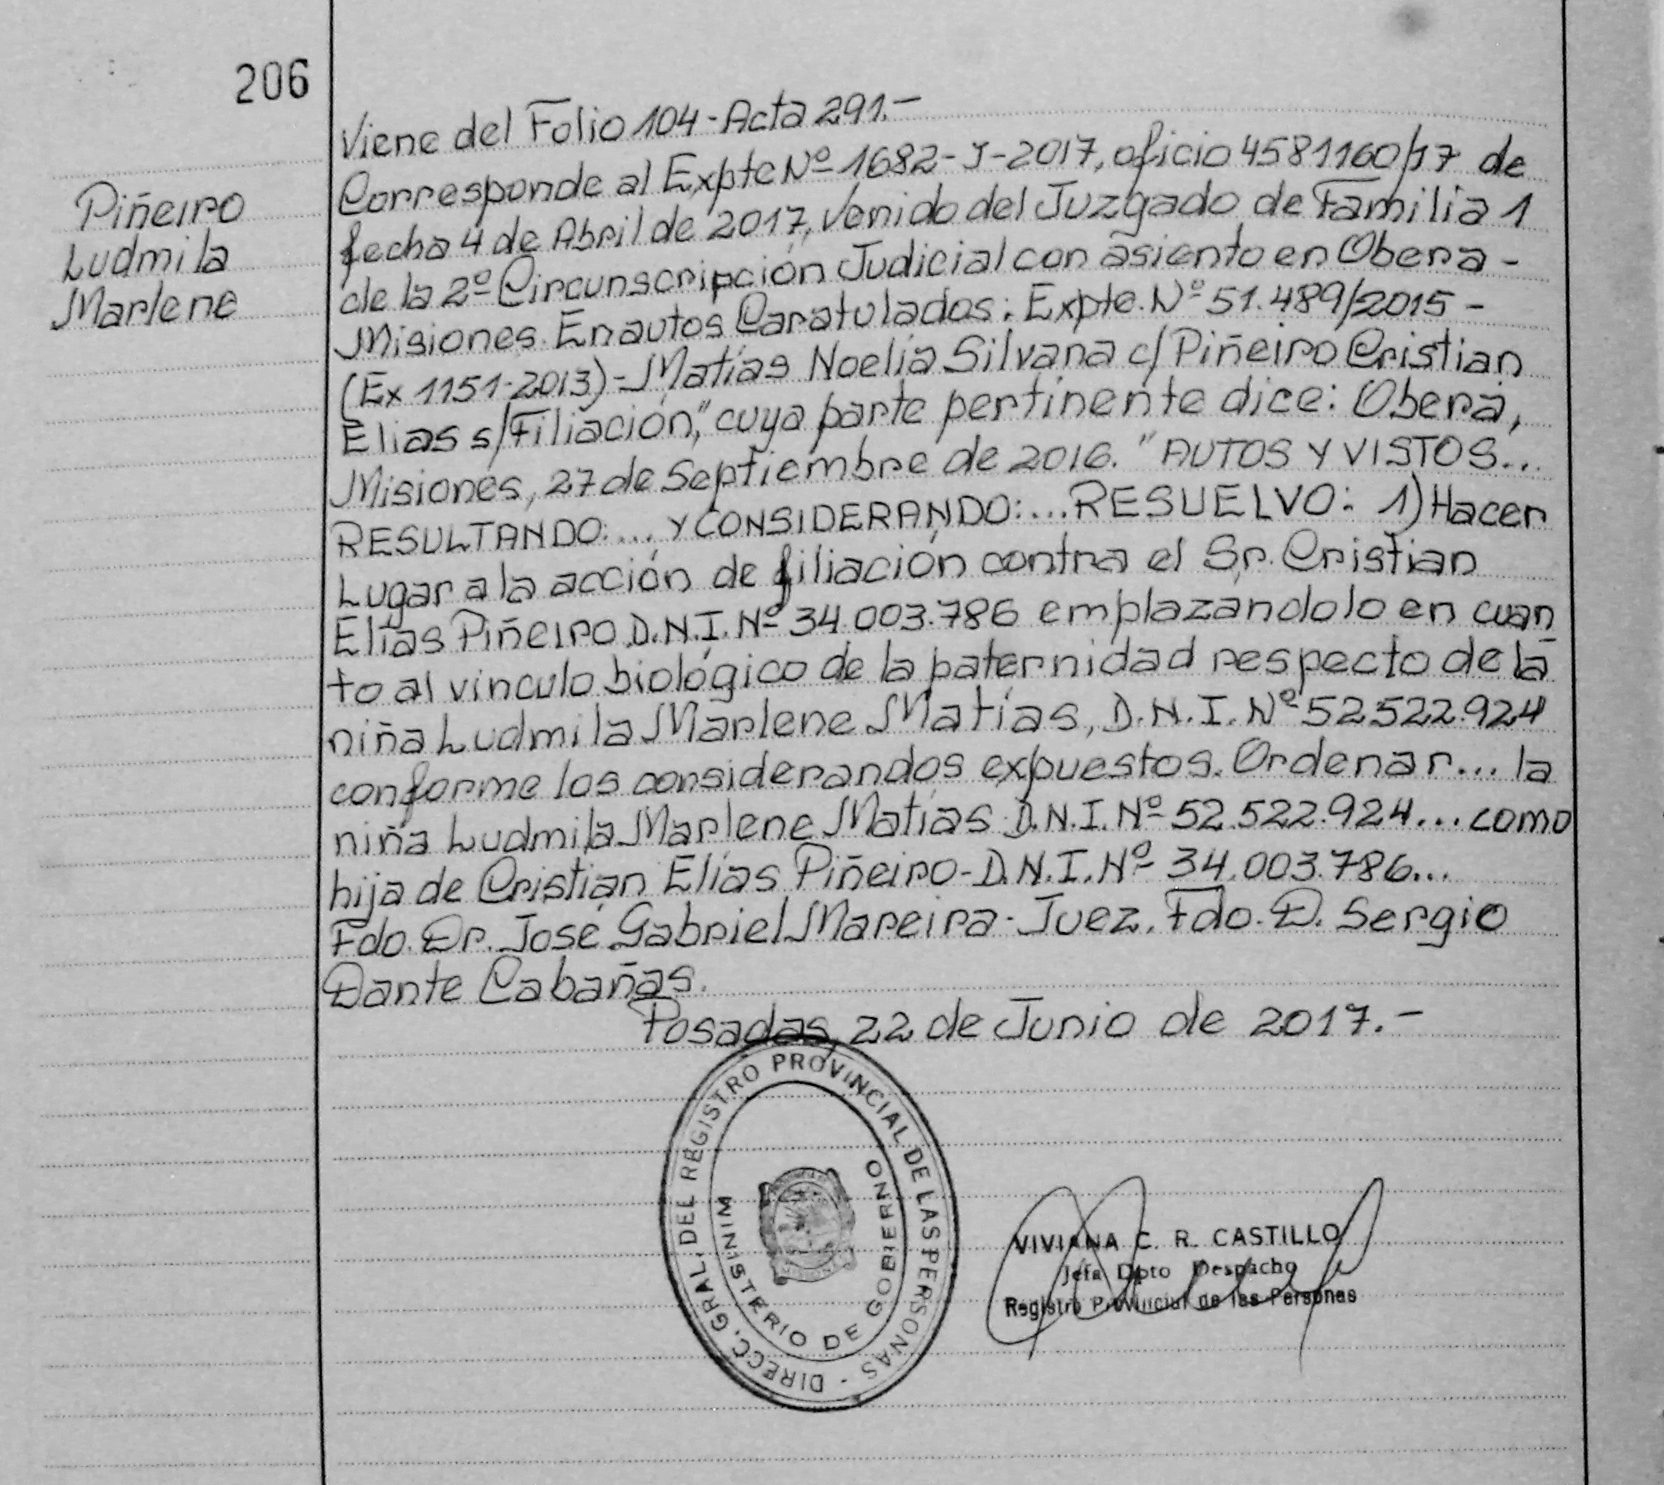 206
Piñeiro
Ludmila
Marlene
Viene del Folio 104 - Acta 291.-
Corresponde al Expte Nº 1682-J-2017, oficio 4581160/17 de
fecha 4 de Abril de 2017, Venido del Juzgado de Familia 1
de la 2º Circunscripción Judicial con asiento en Obera -
Misiones. En autos Caratulados: Expte. Nº 51.489/2015 -
(Ex 1151-2013) - Matías Noelia Silvana c/ Piñeiro Cristian
Elias s/Filiación," cuya parte pertinente dice: Oberá,
Misiones, 27 de Septiembre de 2016. "AUTOS Y VISTOS...
RESULTANDO:..., Y CONSIDERANDO:... RESUELVO: 1) Hacer
Lugar a la acción de filiación contra el Sr. Cristian
Elías Piñeiro D.N.I. Nº 34.003.786 emplazandolo en cuan
to al vinculo biológico de la paternidad respecto de la
niña Ludmila Marlene Matías, D.N.I. Nº 52.522.924
conforme los considerandos expuestos. Ordenar... la
niña Ludmila Marlene Matías D.N.I. Nº 52.522.924... como
hija de Cristian Elías Piñeiro - D.N.I. Nº 34.003.786...
Fdo. Dr. José Gabriel Mareira - Juez. Fdo. D. Sergio
Dante Cabañas.
Posadas, 22 de Junio de 2017.-
DIRECC. GRAL. DEL REGISTRO PROVINCIAL DE LAS PERSONAS -
MINISTERIO DE GOBIERNO
MISIONES
VIVIANA C. R. CASTILLO
Jefa Dpto Despacho
Registro Provincial de las Personas